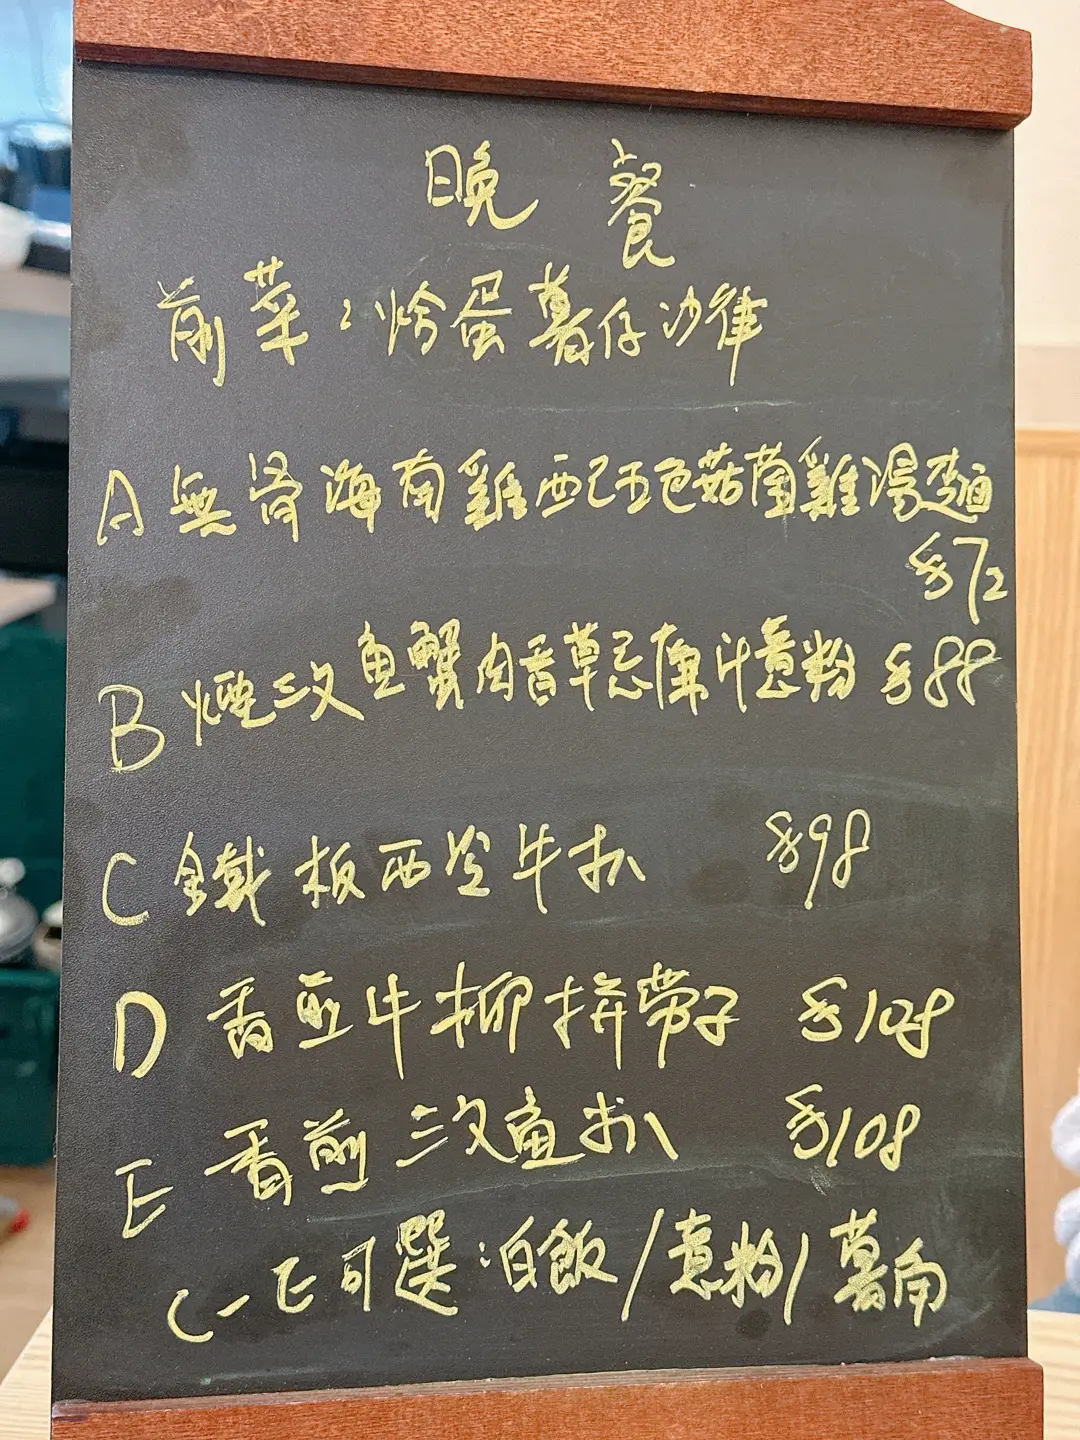 晚餐
前菜:烚蛋薯仔沙律
A 無骨海南雞西巴五色菇菌雞湯麵
$72
B 煙三文魚蟹肉香草忌廉汁意粉 $88
C 鐵板西冷牛扒 $98
D 香煎牛柳拼帶子 $108
E 香煎三文魚扒 $108
C-E可選:白飯/意粉/薯角